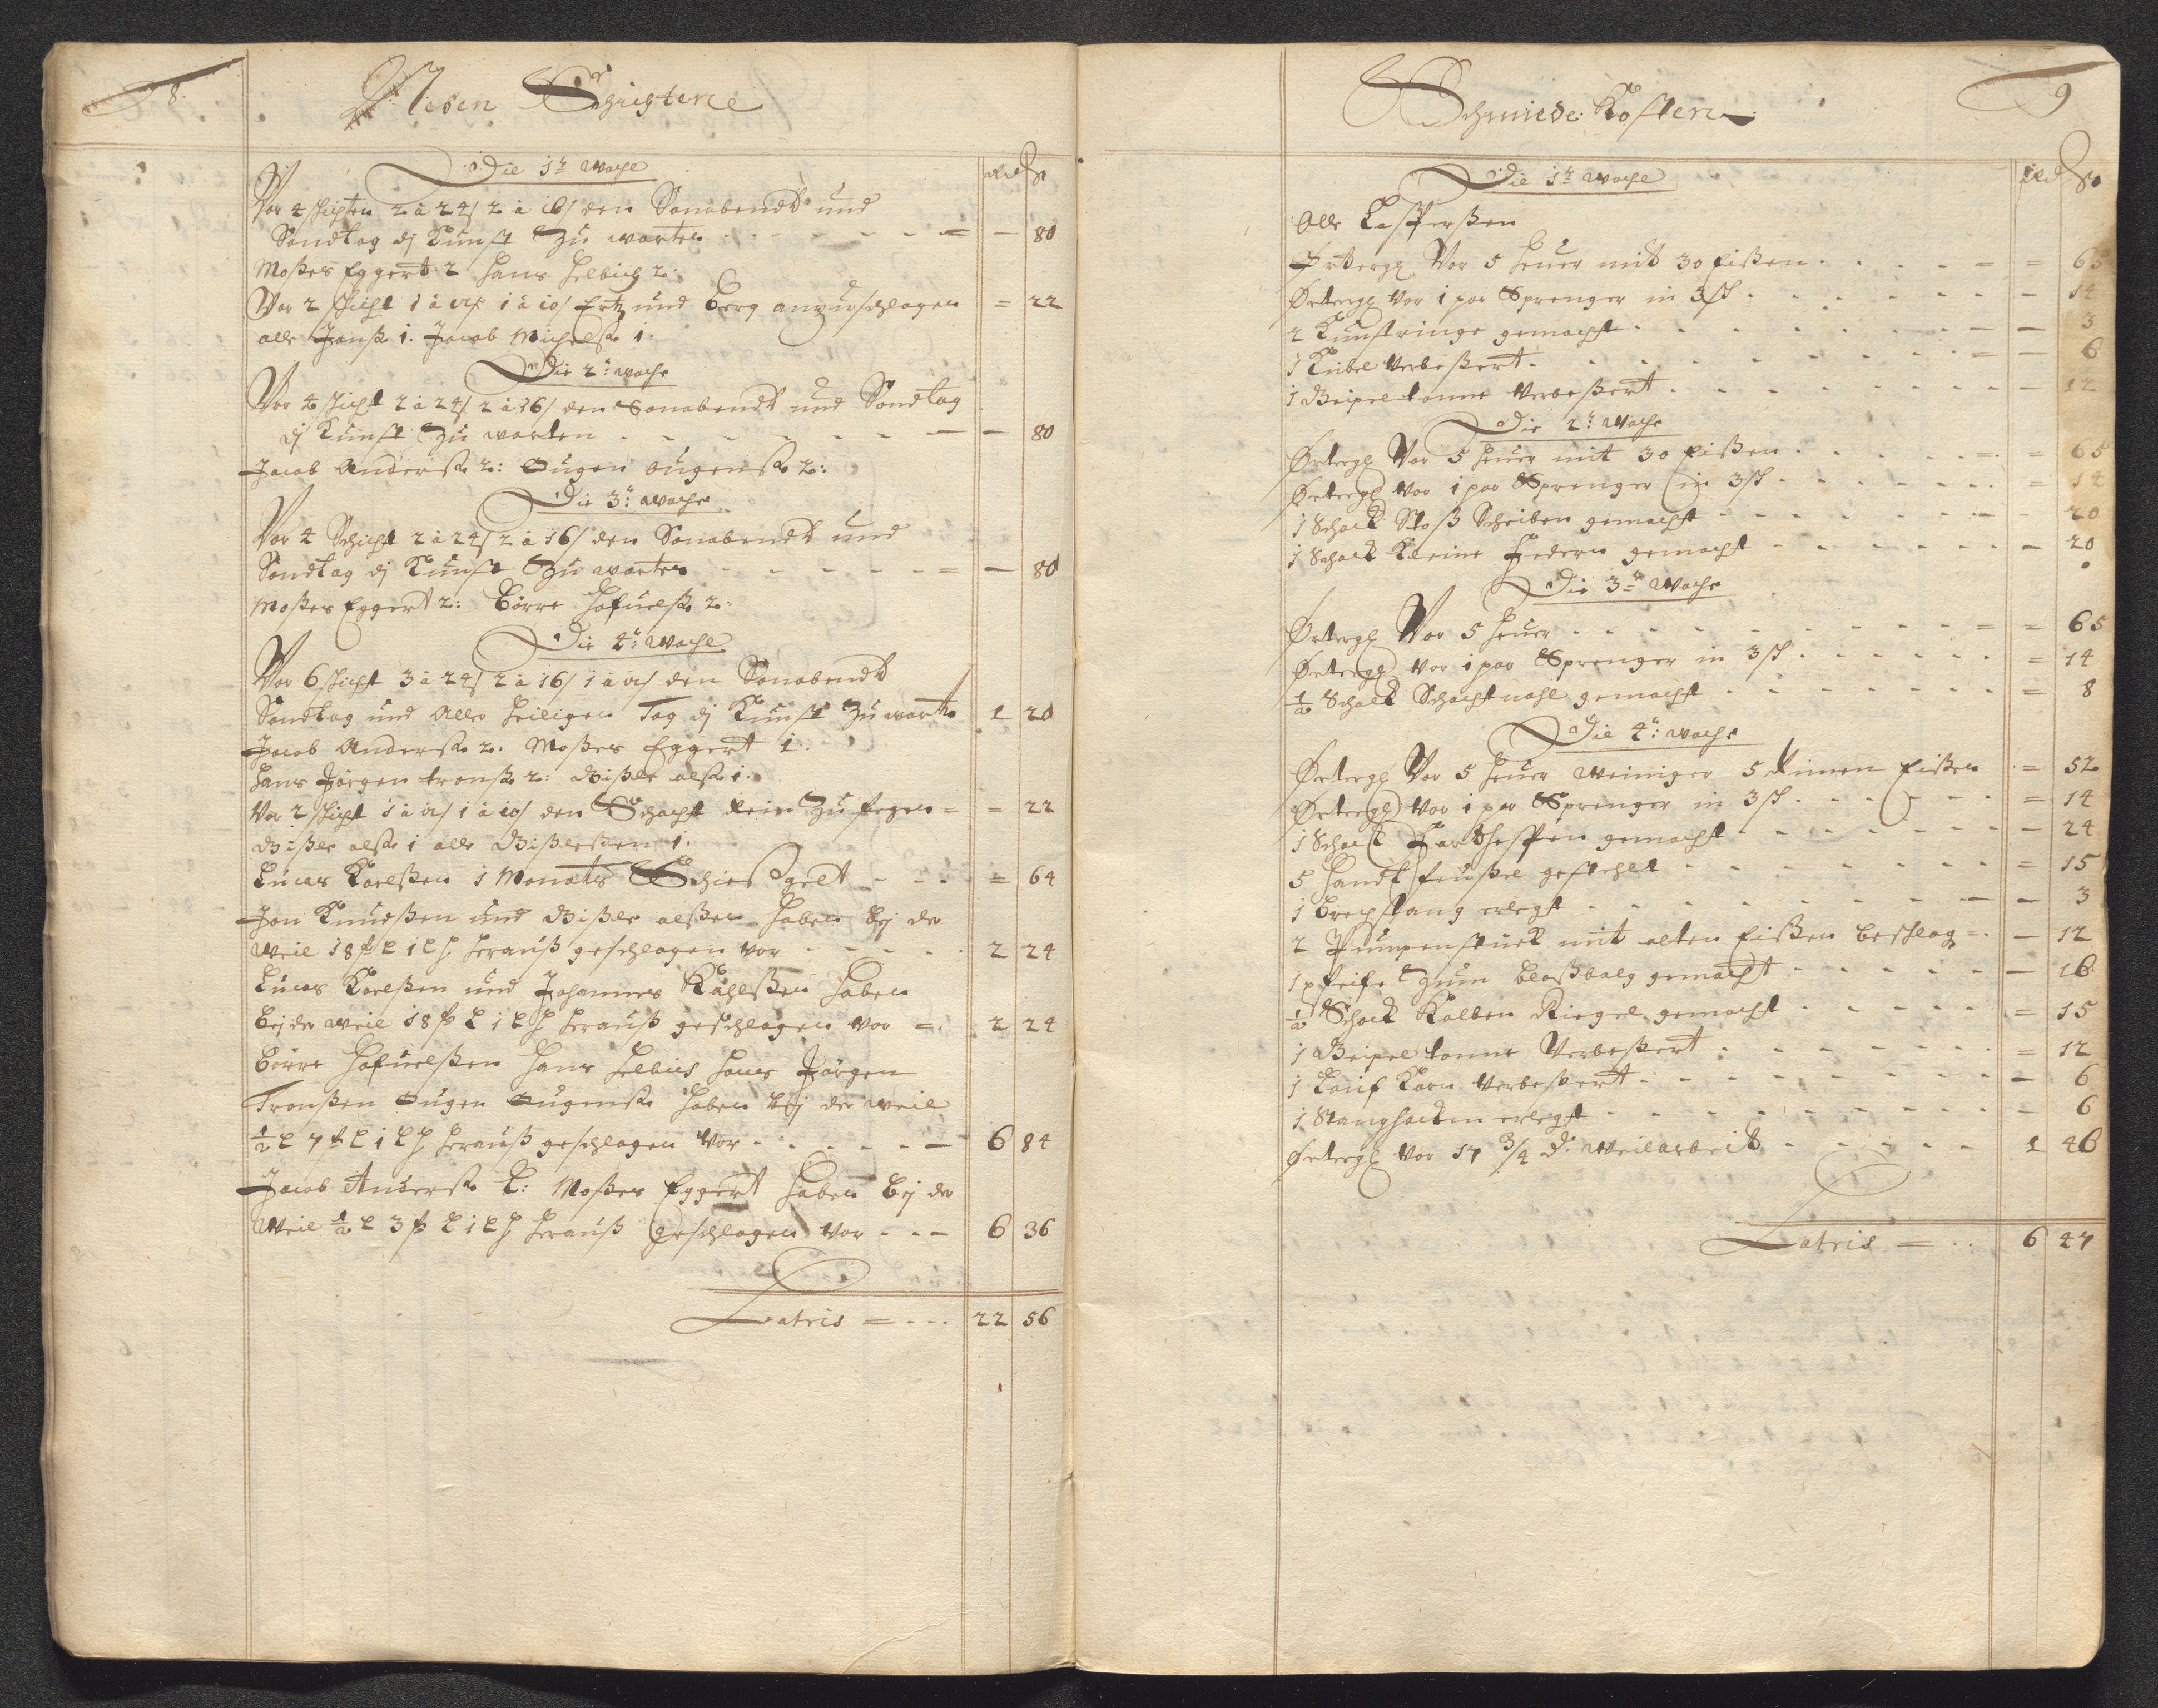 8.
Neben Schichten
Rd ß
Die 1te Woche
Vor 4 schichten 2 a 24/ 2 a 16/ den Sonabendt und
Sondtag dj Kunst Zu warten - - - 80
Moßes Eggert 2 Hans Helbich 2.
Vor 2 schicht 1 a 12/ 1 a 10/ Ertz und Berg anzuschlagen = 22
Alle Janß. 1. Jacob Michelß. 1.
Die 2te Woche
Vor 4 schicht 2 a 24/ 2 a 16/ den Sonabendt und Sondtag
dj Kunst Zu warten - - - 80
Jacob Anderß. 2: Ougen Ougenß. 2:
Die 3te Woche
Vor 4 Schicht 2 a 24/ 2 a 16/ den Sonabendt und
Sondtag dj Kunst Zu warten - - - 80
Moßes Eggert 2: Börre Hafuelß. 2:
Die 4te Woche
Vor 6 schicht 3 a 24/ 2 a 16/ 1 a 12/ den Sonabendt
Sondtag und Aller Heiligen Tag dj Kunst Zu wart. 1 20
Jacob Anderß. 2. Moßes Eggert 1.
Hans Jörgen Tronß. 2: Gißle Olß. 1.
Vor 2 schicht 1 a 12/ 1 a 10/ den Schacht Rein Zu fegen = = 22
Gißle Olß. 1 Alle Gißleßen 1.
Lucas Karlßen 1 Monats Schießgelt - - - = 64
Jon Knudßen und Gißle Olßen haben bej der
Weil 18 herauß geschlagen vor - - - 2 24
Lucas Karlßen und Johannes Kahlßen haben
bej der Weil 18 herauß geschlagen vor = 2 24
Börre Hafuelßen Hans Helbich Hans Jörgen
Tronßen Ougen Ougenß. haben bej der Weil
1/2 L 7 herauß geschlagen vor - - - 6 84
Jacob Anderß. L: Moßes Eggert haben bej der
Weil 1/2 L 3 herauß geschlagen vor - - - 6 36
Latris = - - - 22 56
9
Schmiede Kosten
Rd ß
Die 1te Woche
Olle Casperßen
Örtergl Vor 5 heuer mit 30 Eißen - - - 65
Örtergl vor 1 par Sprenger in 3 sch - - - 14
2 Kunstringe gemacht - - - 3
1 Kübel verbeßert - - - 6
1 Geipel tonne verbeßert - - - 12
Die 2te Woche
Örtergl Vor 5 heuer mit 30 Eißen - - - 65
Örtergl vor 1 par Sprenger in 3 sch - - - 14
1 Schock Stoß Scheiben gemacht - - - 20
1 Schock Kleine Federn gemacht - - - 20
Die 3te Woche
Örtergl Vor 5 heuer - - - 65
Örtergl vor 1 par Sprenger in 3 sch - - - 14
1/2 Schock Schachtnahl gemacht - - - 8
Die 4te Woche
Örtergl Vor 5 heuer weiniger 5 Rimen Eißen = 52
Örtergl vor 1 par Sprenger in 3 sch - - - 14
1 Schock gemacht - - - 24
5 Handt feußel gestehlt - - - 15
1 Brechstang erlegt - - - 3
2 Pumpenstück mit alten Eißen beschlag = - 12
1 pfeife Zum Blaßbalg gemacht - - - 16
1/2 Schock Kolben Riegel gemacht - - - 15
1 Geipel tonne Verbeßert - - - 12
1 Lauf Karn verbeßert - - - 6
1 Stanghacken erlegt - - - 6
Örtergl vor 17 3/4 d. Weilarbeit - - - 1 46
Latris = - - 6 47